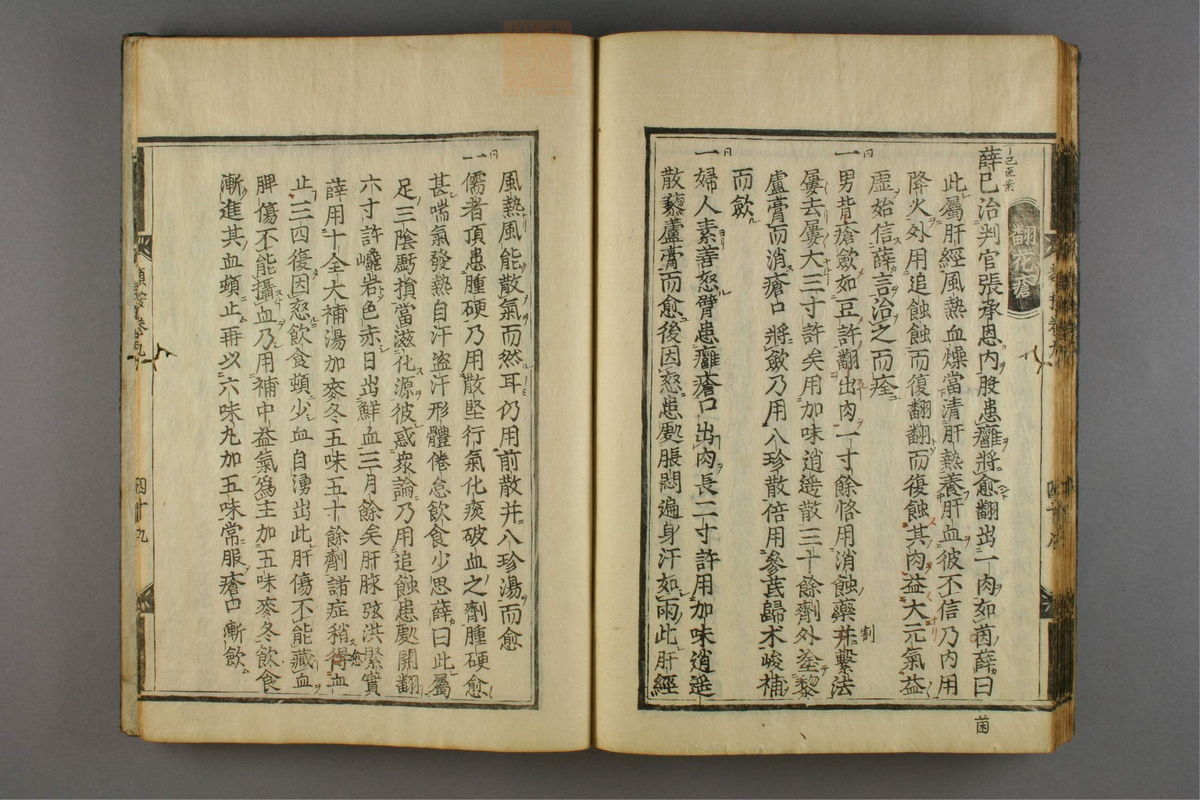 翻花瘡
薛已治判官張承恩内股患癰將愈翻出一肉如菌薛曰
此屬肝經風熱血燥當清肝熱養肝血彼不信乃内用
降火外用追蝕蝕而復翻翻而復蝕其肉益大元氣益
虛始信薛言治之而痊
一男背瘡歛如豆許翻出肉一寸餘恪用消蝕藥并繫法
屢去屢大三寸許矣用加味逍遙散三十餘劑外塗藜
盧膏而消瘡口將歛乃用八珍散倍用參芪歸木峻補
而歛
一婦人素善怒臂患癰瘡口出肉長二寸許用加味逍遥
散藜蘆膏而愈後因怒患處脹悶遍身汗如雨此肝經
菌
風熱風能散氣而然耳仍用前散并八珍湯而愈
一儒者頂患腫硬乃用散堅行氣化痰破血之劑腫硬愈
甚喘氣發熱自汗盜汗形體倦怠飲食少思薛曰此屬
足三陰虧損當滋化源彼惑衆論乃用追蝕患處開翻
六寸許巉岩色赤日出鮮血三月餘矣肝脉弦洪緊實
薛用十全大補湯加麥冬五味五十餘劑諸症稍得血
止三四復因怒飲食頓少血自湧出此肝傷不能藏血
脾傷不能攝血乃用補中益氣為主加五味麥冬飲食
漸進其血頓止再以六味丸加五味常服瘡口漸歛
四十九